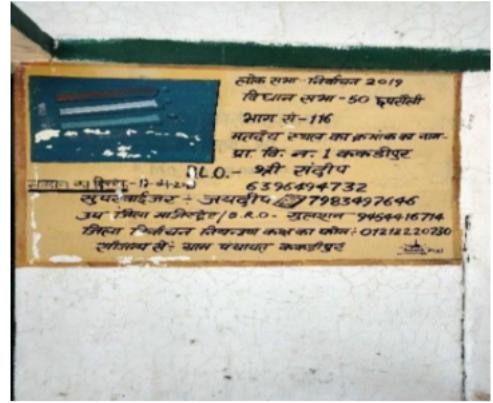 लोक सभा निर्वाचन 2019
विधान सभा - 50 छपरौली
भाग सं - 116
मतदेय स्थल का क्रमांक का नाम -
प्रा. वि. न. 1 ककडीपुर
B.L.O. - श्री संदीप
मतदान का दिनांक -
6396494732
सुपरवाईजर - जयदीप 7983497646
उप जिला मजिस्ट्रेट / B.R.O. - गुलशन 9454416714
जिला निर्वाचन नियन्त्रण कक्ष का फोन : 01212220730
सौजन्य से : ग्राम पंचायत ककडीपुर